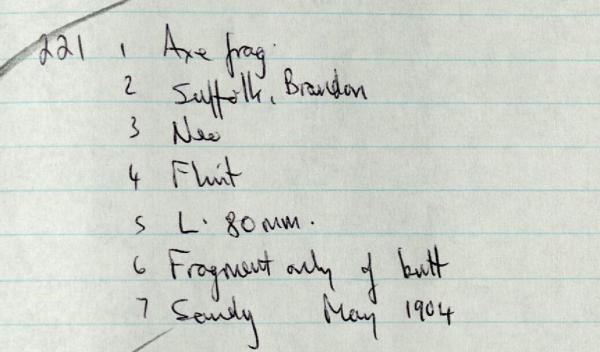 221 1 Axe frag.
2 Suffolk, Brandon
3 Neo
4 Flint
5 L. 80mm.
6 Fragment only of butt
7 Sandy May 1904